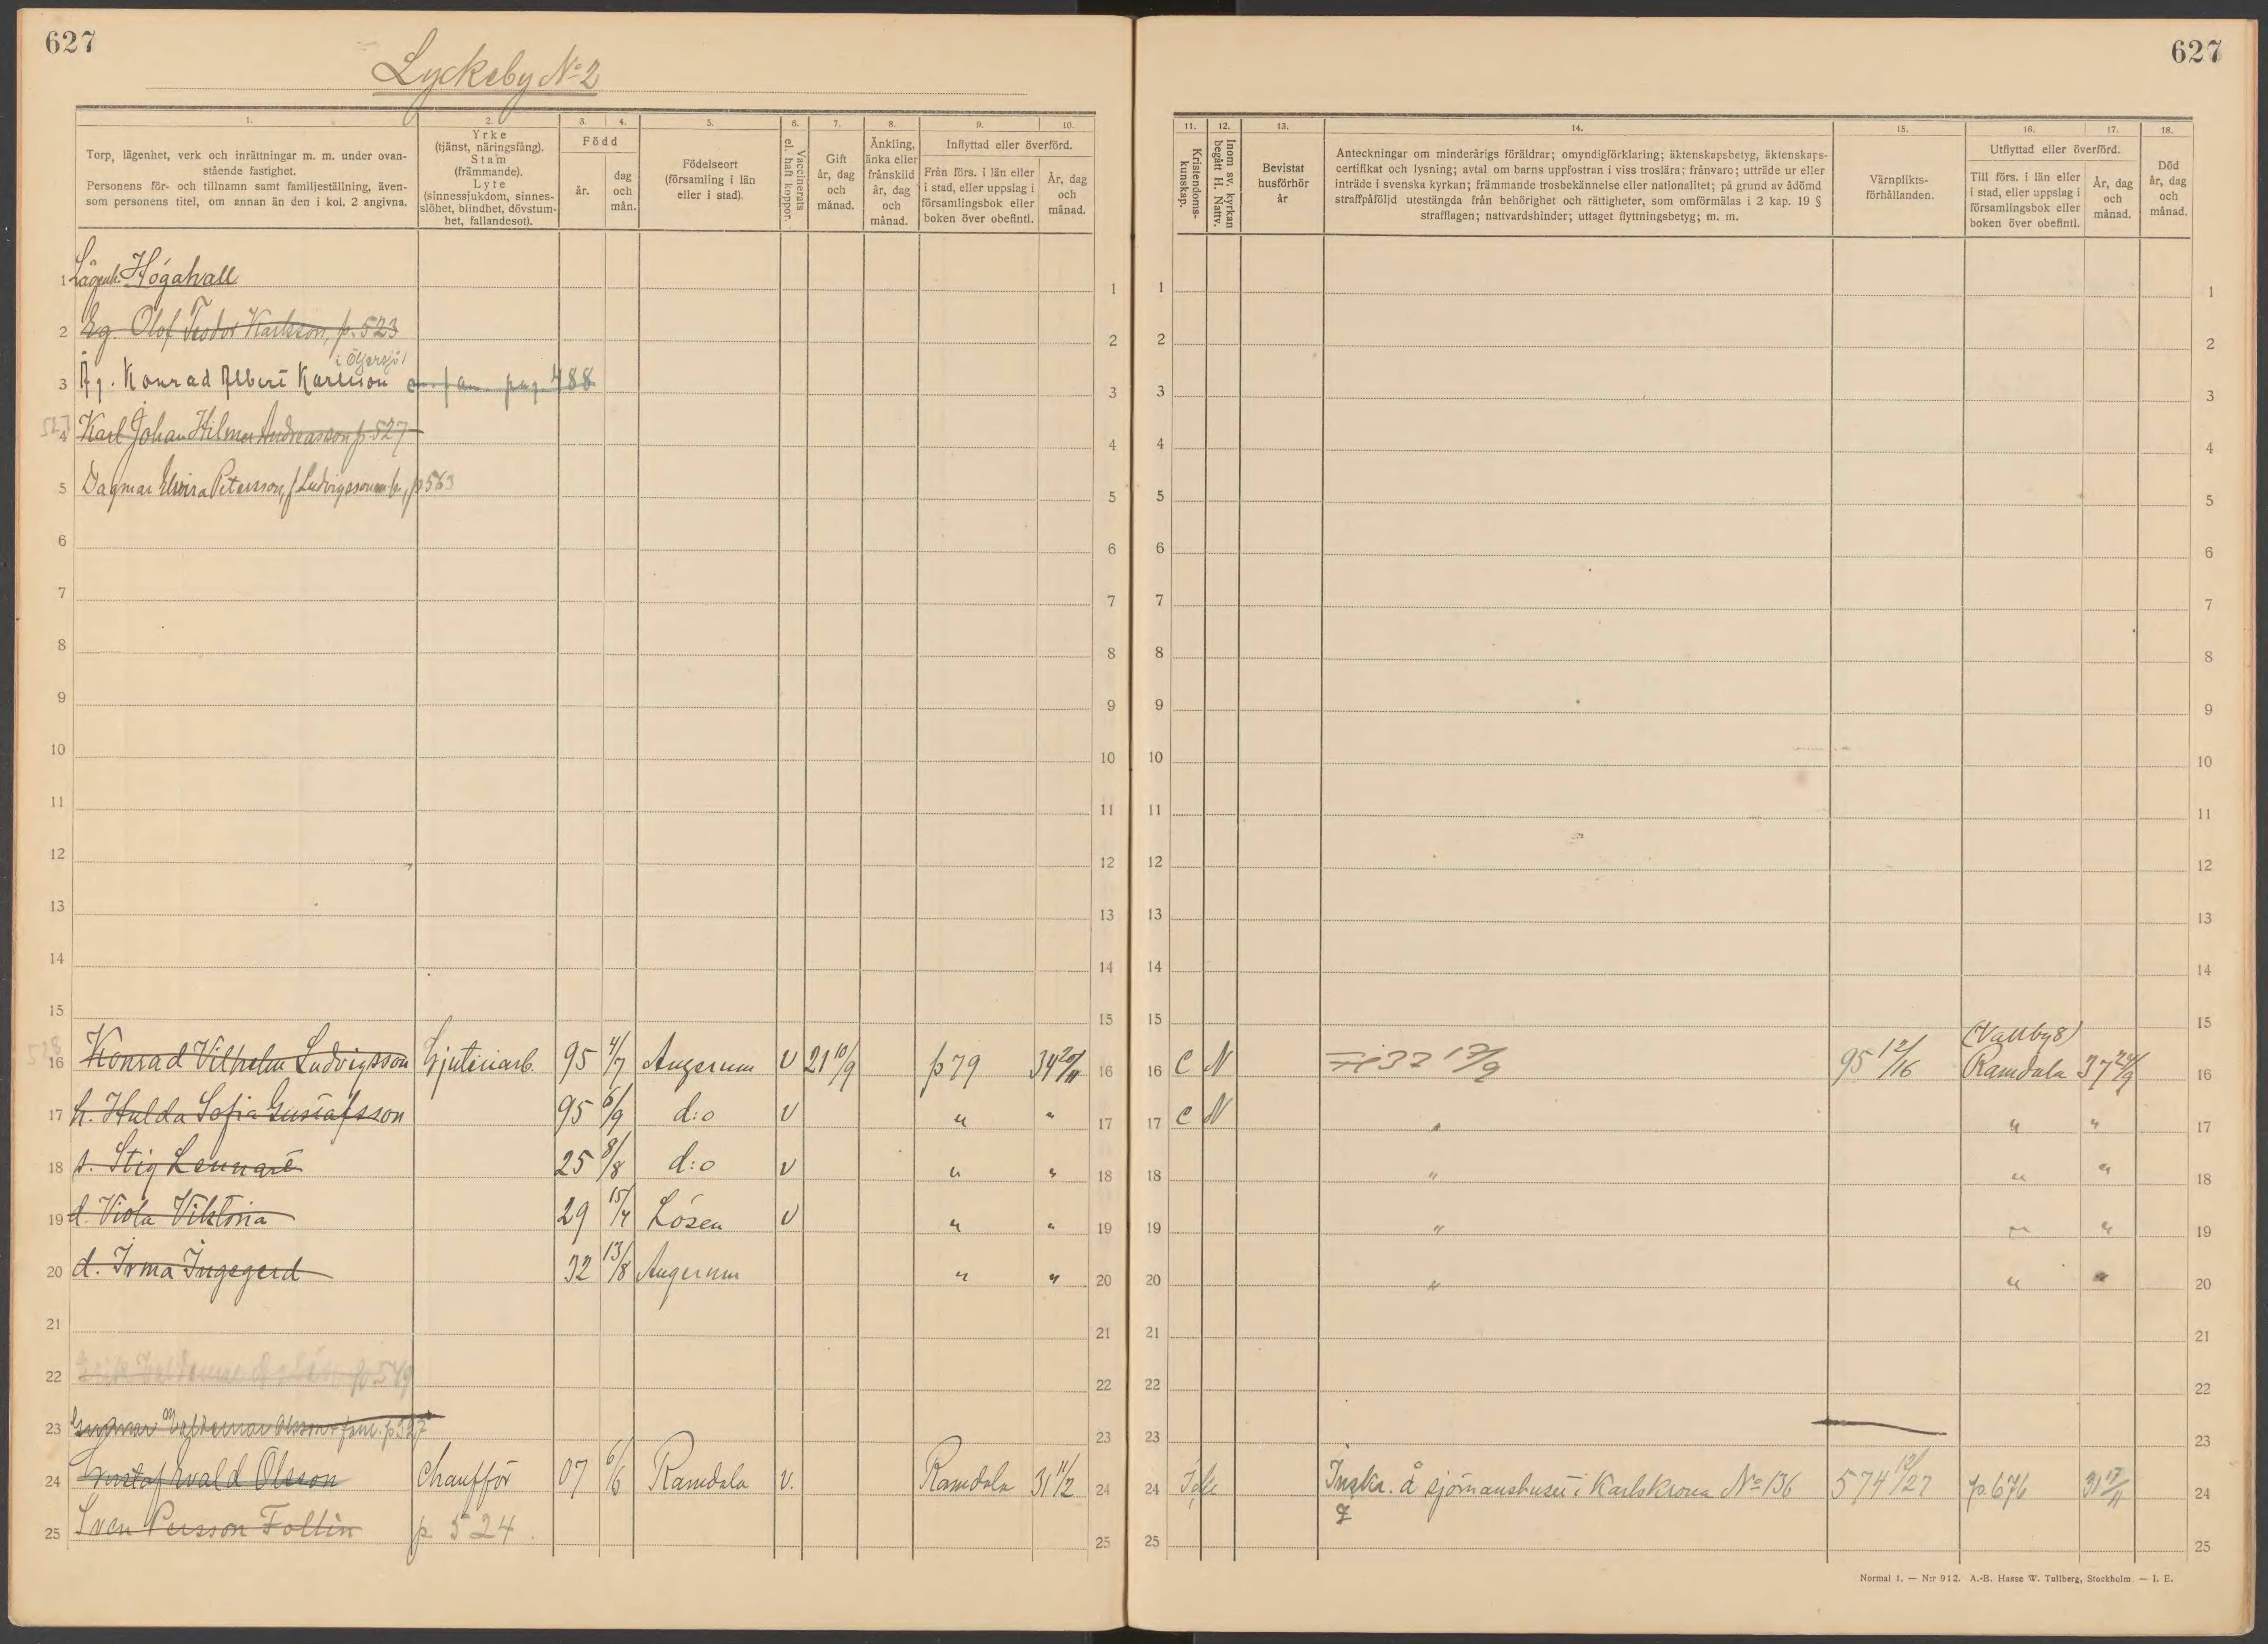 627
Lyckeby No 2
1.
Torp, lägenhet, verk och inrättningar m. m. under ovan-
stående fastighet.
Personens för- och tillnamn samt familjeställning, även-
som personens titel, om annan än den i kol. 2 angivna.
2.
Yrke
(tjänst, näringsfång).
Stam
(främmande).
Lyte
(sinnessjukdom, sinnes-
slöhet, blindhet, dövstum-
het, fallandesot).
3. 4.
Född
år.
dag
och
mån.
5.
Födelseort
(församling i län
eller i stad).
6.
Vaccinerats
el. haft koppor.
7.
Gift
år, dag
och
månad.
8.
Änkling,
änka eller
frånskild
år, dag
och
månad.
9. 10.
Inflyttad eller överförd.
Från förs. i län eller
i stad, eller uppslag i
församlingsbok eller
boken över obefintl.
År, dag
och
månad.
1 Lägenh. Högahall 1
2 Äg. Olof Teodor Karlsson, p. 523 2
3 Äg. Konrad Albert Karlsson pag. 488 3
4 Karl Johan Hilmer Andreasson p. 527 4
5 Dagmar Elvira Petersson, f Ludvigsson p 563 5
6 6
7 7
8 8
9 9
10 10
11 11
12 12
13 13
14 14
15 15
16 Konrad Vilhelm Ludvigsson Gjuteriarb. 95 4/7 Augerum V 21 10/9 p 79 34 20/11 16
17 h. Hulda Sofia Gustafsson 95 6/9 d:o V " " 17
18 s. Stig Lennart 25 8/8 d:o V " " 18
19 d. Viola Viktoria 29 15/4 Lösen V " " 19
20 d. Irma Ingegerd 32 13/8 Augerum " " 20
21 21
22 p 549 22
23 Valdemar Olsson 23
24 Gustaf Evald Olsson Chaufför 07 6/6 Ramdala V. Ramdala 31 11/2 24
25 Sven Persson Follin p. 524. 25
627
11.
Kristendoms-
kunskap.
12.
Inom sv. kyrkan
begått H. Nattv.
13.
Bevistat
husförhör
år
14.
Anteckningar om minderårigs föräldrar; omyndigförklaring; äktenskapsbetyg, äktenskaps-
certifikat och lysning; avtal om barns uppfostran i viss troslära; frånvaro; utträde ur eller
inträde i svenska kyrkan; främmande trosbekännelse eller nationalitet; på grund av ådömd
straffpåföljd utestängda från behörighet och rättigheter, som omförmälas i 2 kap. 19 §
strafflagen; nattvardshinder; uttaget flyttningsbetyg; m. m.
15.
Värnplikts-
förhållanden.
16. 17.
Utflyttad eller överförd.
Till förs. i län eller
i stad, eller uppslag i
församlingsbok eller
boken över obefintl.
År, dag
och
månad.
18.
Död
år, dag
och
månad.
1 1
2 2
3 3
4 4
5 5
6 6
7 7
8 8
9 9
10 10
11 11
12 12
13 13
14 14
15 15
(Vallby 8)
16 C N 95 12/16 Ramdala 37 24/9 16
17 C N " " " 17
18 " " " 18
19 " " " 19
20 " " " 20
21 21
22 22
23 23
24 Inskr. å sjömanshuset i Karlskrona No 136 574 12/27 p. 676 31 17/11 24
25 25
Normal 1. — N:r 912. A.-B. Hasse W. Tullberg, Stockholm. — I. E.